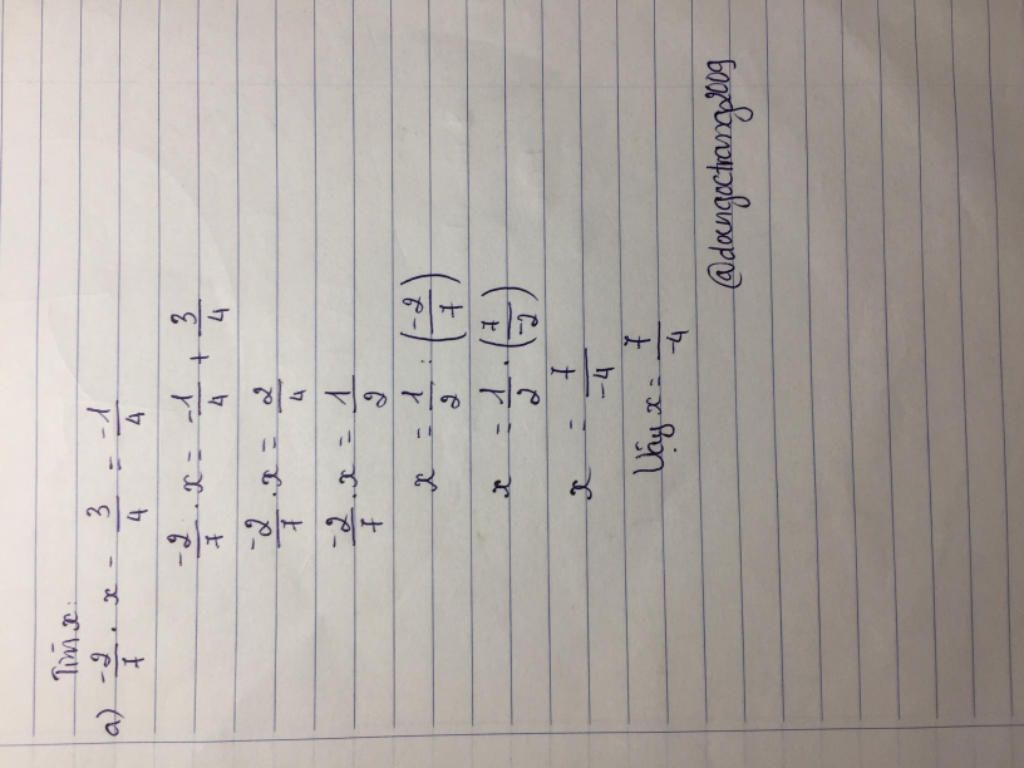 Tìm x:
a) -2/7 . x - 3/4 = -1/4
-2/7 . x = -1/4 + 3/4
-2/7 . x = 2/4
-2/7 . x = 1/2
x = 1/2 : (-2/7)
x = 1/2 . (7/-2)
x = 7/-4
Vậy x = 7/-4
@doangoctrang2009